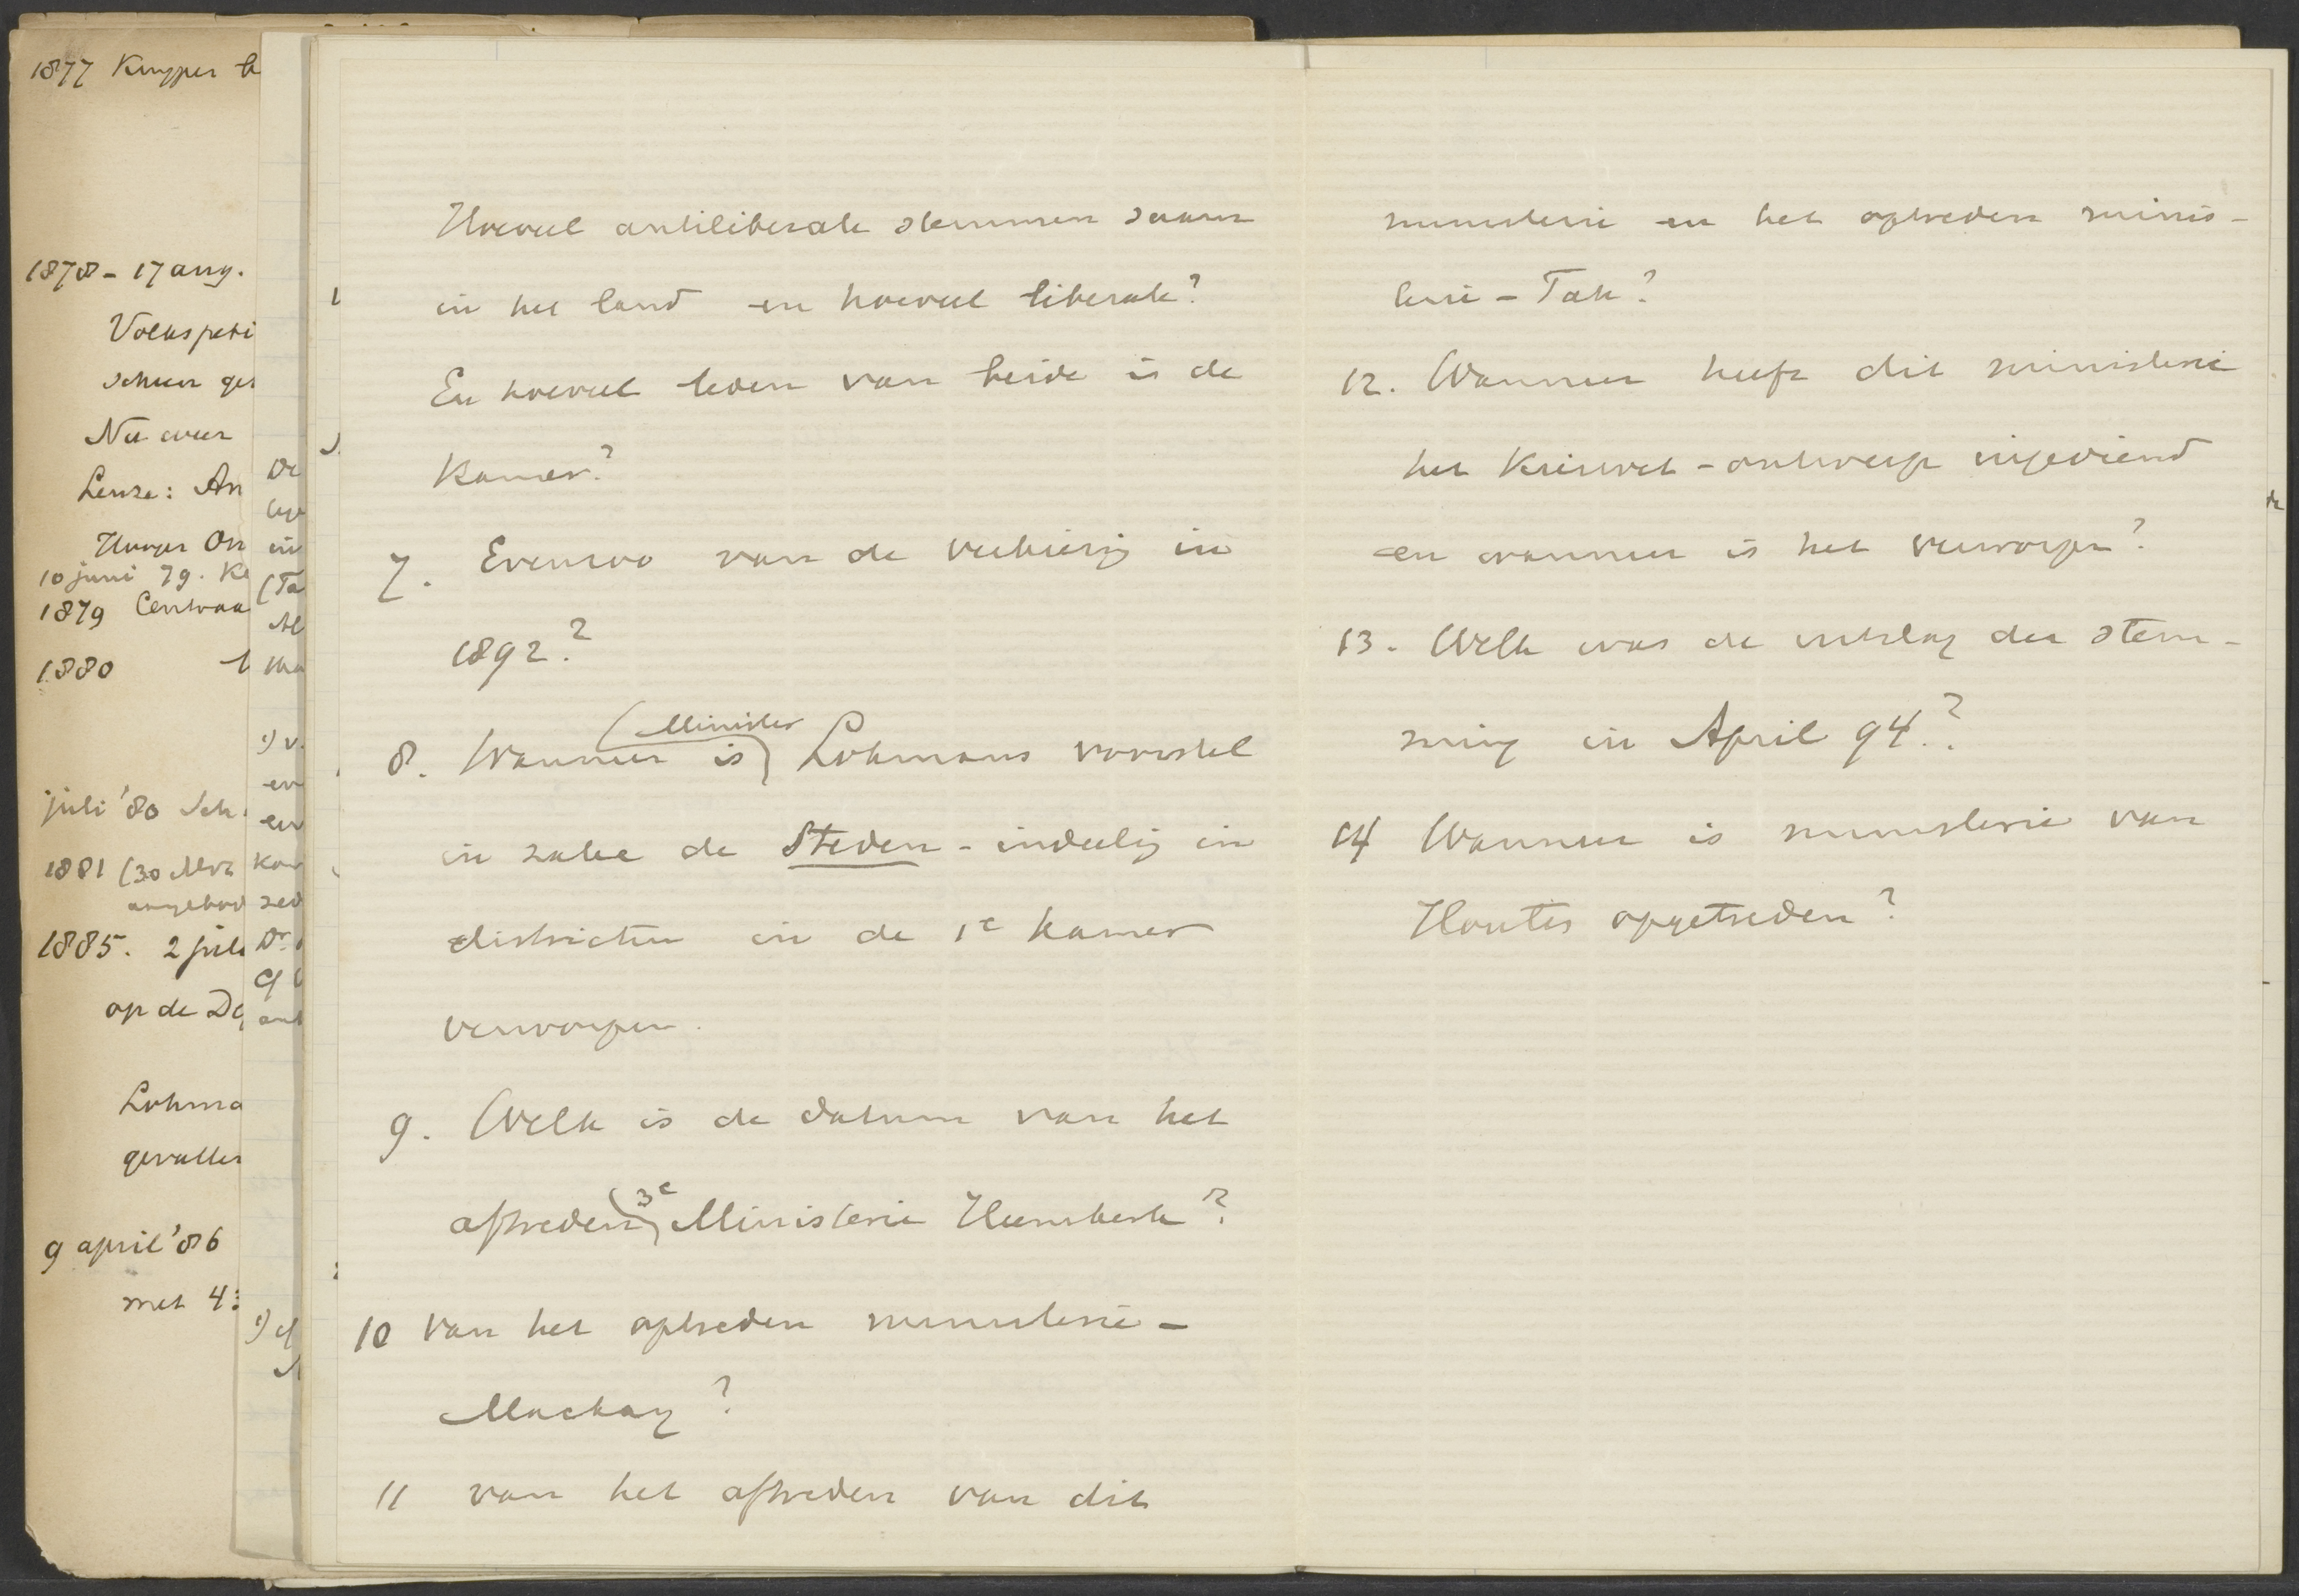 1877 Kuyper
1878 - 17 aug.
Volkspeti
Nu weer
Leuze: An
10 juni 79. Ke
1879 Centraa
1880
juli '80 Sch
1881 (30
angebod
1885. 2 juli
op de De
Lohma
gevallen
9 april '86
met 43
Hoeveel antiliberale stemmen waren
in het land en hoeveel liberale?
En hoeveel leden van beide in de
Kamer?
7. Evenzoo van de verkiezing in
1892.?
8. Wanneer is (Minister) Lohmans voorstel
in zake de Steden - indeeling in
districten in de 1e Kamer
verworpen.
9. Welk is de datum van het
aftreden (3e) Ministerie Heemskerk?
10 van het optreden ministerie -
Mackay?
11 van het aftreden van dit
ministerie en het optreden minis-
terie - Tak?
12. Wanneer heeft dit ministerie
het Kieswet - ontwerp ingediend
en wanneer is het verworpen?
13. Welk was de uitslag der stem-
ming in April 94.?
14 Wanneer is ministerie van
Houten opgetreden?